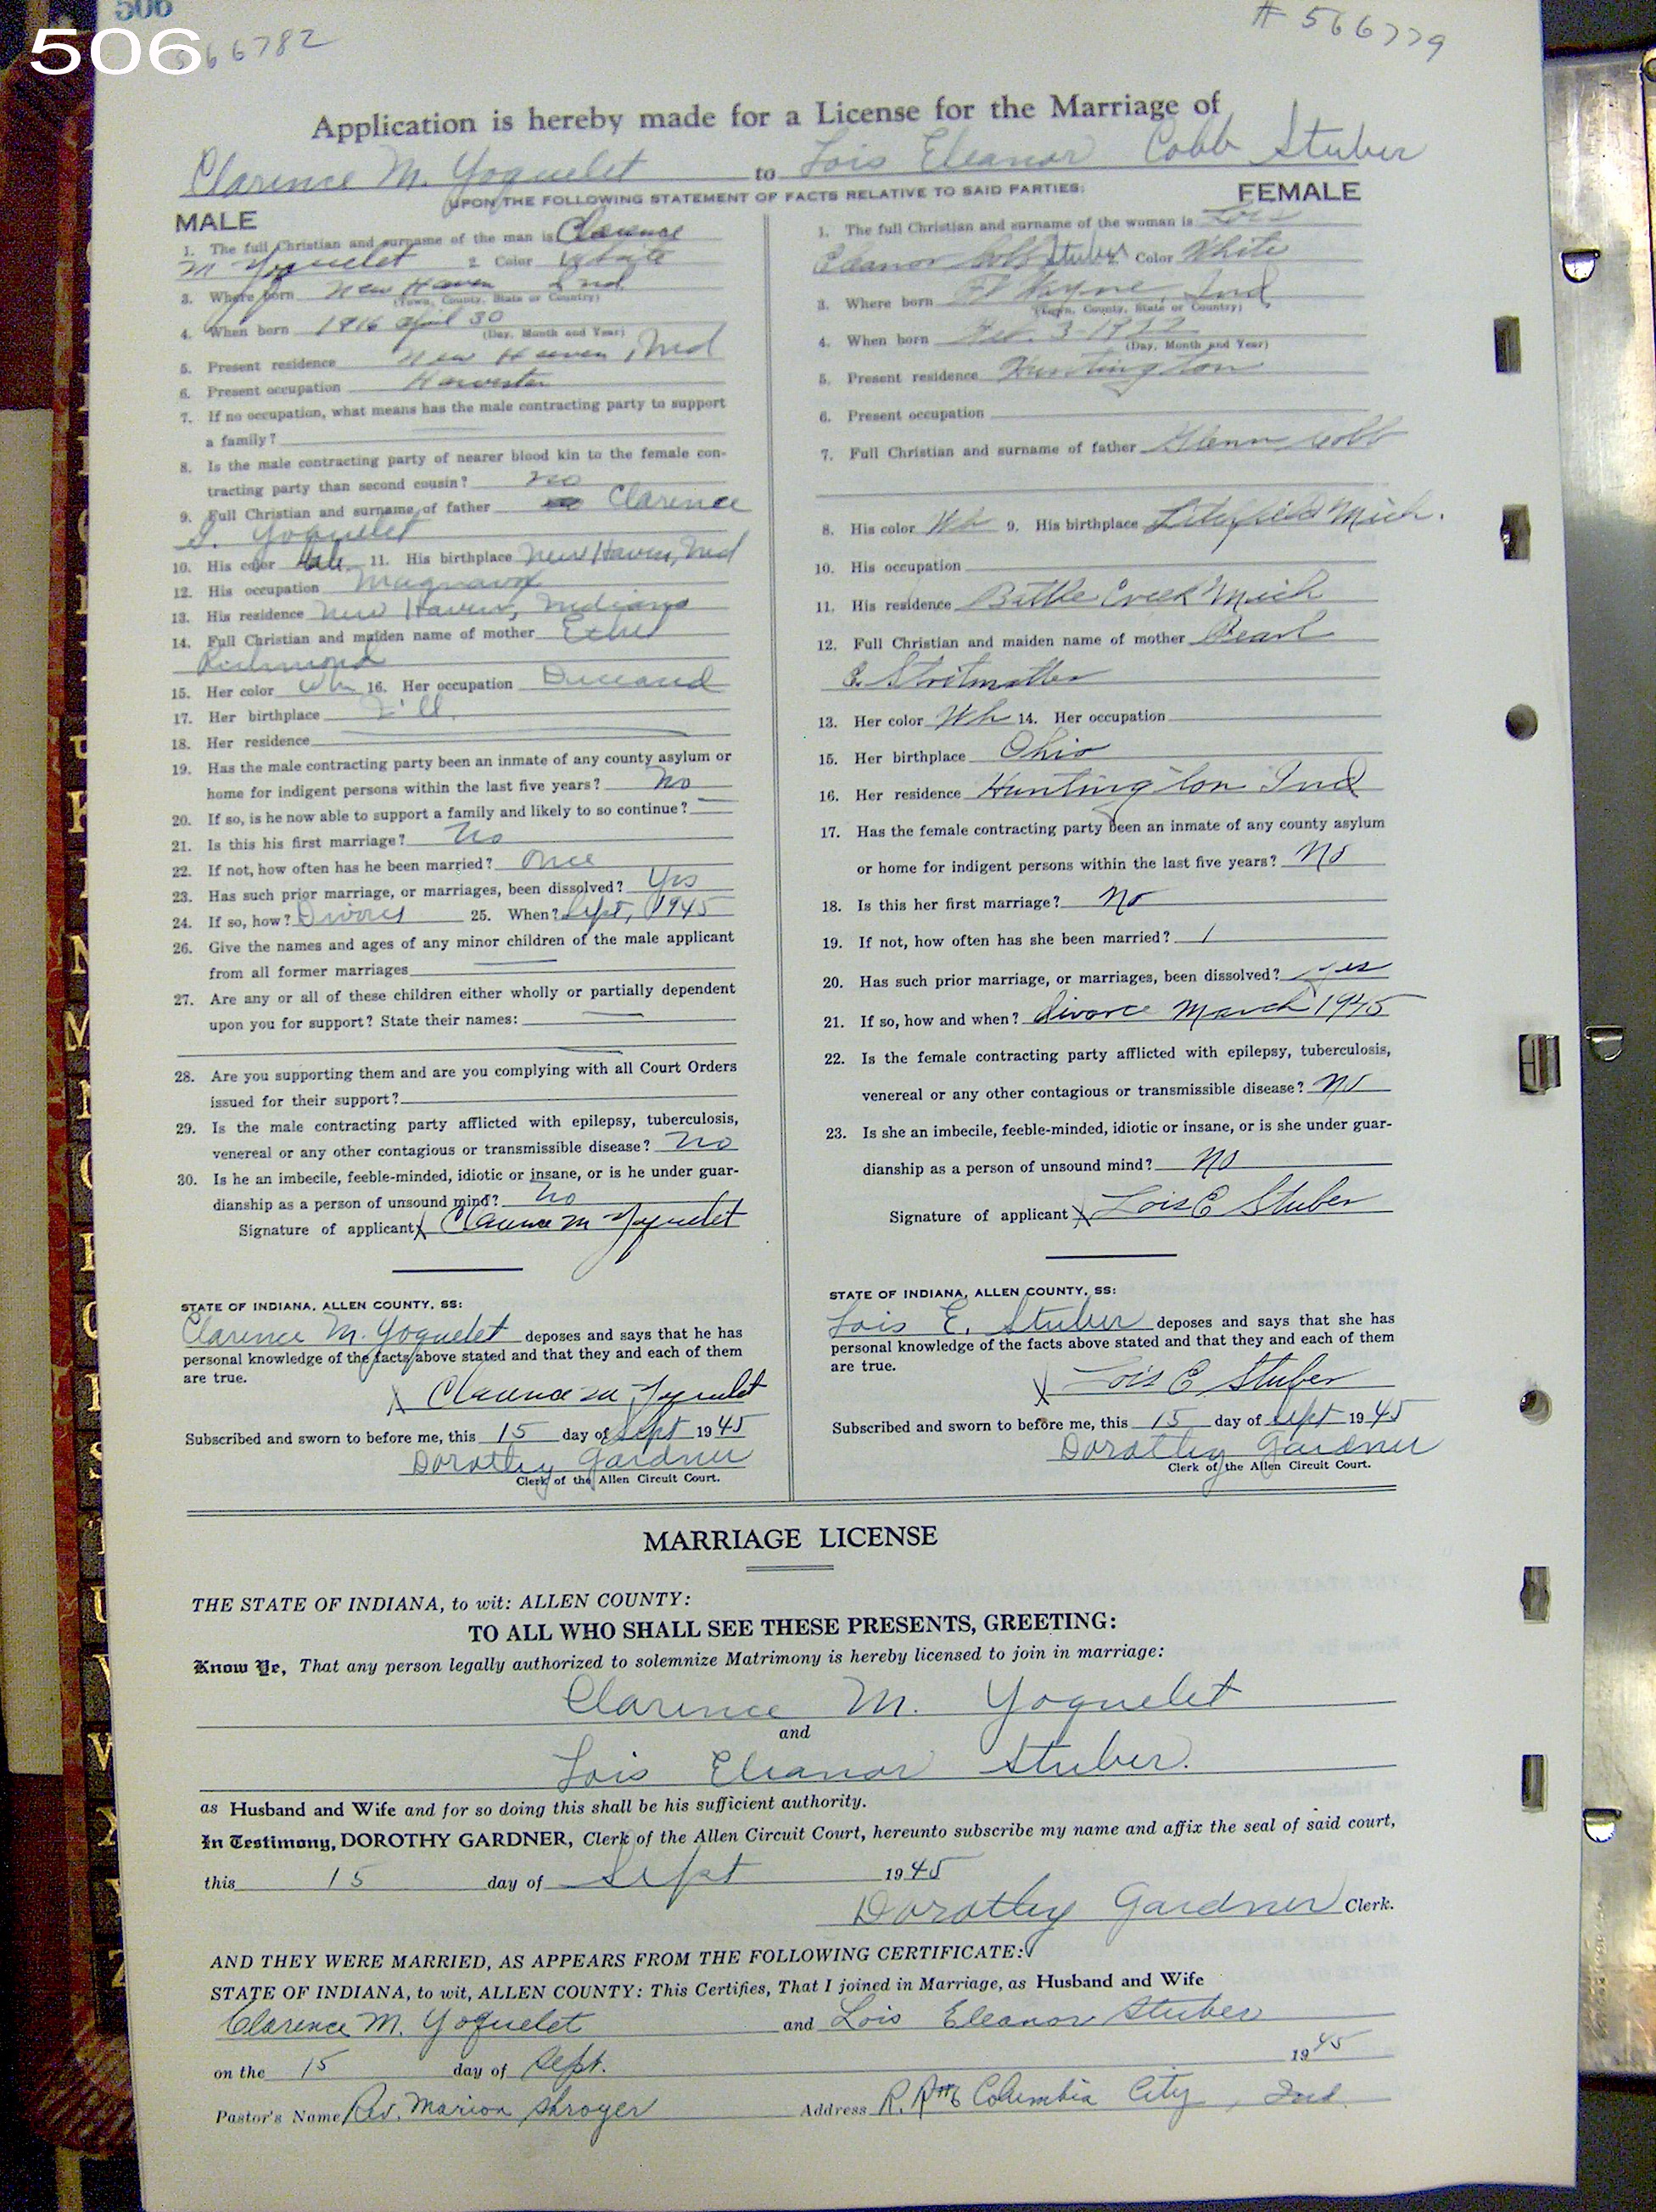 506
506
66782
# 566779
Application is hereby made for a License for the Marriage of
Clarence M. Yoquelet to Lois Eleanor Cobb Stuber
UPON THE FOLLOWING STATEMENT OF FACTS RELATIVE TO SAID PARTIES:
MALE
1. The full Christian and surname of the man is Clarence
M Yoquelet 2. Color White
3. Where born New Haven Ind
(Town, County, State or Country)
4. When born 1916 April 30
(Day, Month and Year)
5. Present residence New Haven, Ind
6. Present occupation Harvester
7. If no occupation, what means has the male contracting party to support
a family?
8. Is the male contracting party of nearer blood kin to the female con-
tracting party than second cousin? no
9. Full Christian and surname of father Clarence
Yoquelet
10. His color Wh. 11. His birthplace New Haven, Ind
12. His occupation Magnavox
13. His residence New Haven, Indiana
14. Full Christian and maiden name of mother Ethel
Richmond
15. Her color Wh 16. Her occupation Deceased
17. Her birthplace Ill.
18. Her residence
19. Has the male contracting party been an inmate of any county asylum or
home for indigent persons within the last five years? No
20. If so, is he now able to support a family and likely to so continue?
21. Is this his first marriage? No
22. If not, how often has he been married? Once
23. Has such prior marriage, or marriages, been dissolved? Yes
24. If so, how? Divorce 25. When? Sept, 1945
26. Give the names and ages of any minor children of the male applicant
from all former marriages
27. Are any or all of these children either wholly or partially dependent
upon you for support? State their names:
28. Are you supporting them and are you complying with all Court Orders
issued for their support?
29. Is the male contracting party afflicted with epilepsy, tuberculosis,
venereal or any other contagious or transmissible disease? No
30. Is he an imbecile, feeble-minded, idiotic or insane, or is he under guar-
dianship as a person of unsound mind? No
Signature of applicant X Clarence M Yoquelet
STATE OF INDIANA, ALLEN COUNTY, SS:
Clarence M. Yoquelet deposes and says that he has
personal knowledge of the facts above stated and that they and each of them
are true.
X Clarence M Yoquelet
Subscribed and sworn to before me, this 15 day of Sept 1945
Dorothy Gardner
Clerk of the Allen Circuit Court.
FEMALE
1. The full Christian and surname of the woman is Lois
Eleanor Cobb Stuber 2. Color White
3. Where born Ft Wayne, Ind
(Town, County, State or Country)
4. When born 3 - 1922
(Day, Month and Year)
5. Present residence Huntington
6. Present occupation
7. Full Christian and surname of father Glenn Cobb
8. His color Wh 9. His birthplace Litchfield Mich.
10. His occupation
11. His residence Battle Creek Mich
12. Full Christian and maiden name of mother Pearl
E. Stritmatter
13. Her color Wh 14. Her occupation
15. Her birthplace Ohio
16. Her residence Huntington Ind
17. Has the female contracting party been an inmate of any county asylum
or home for indigent persons within the last five years? No
18. Is this her first marriage? No
19. If not, how often has she been married? 1
20. Has such prior marriage, or marriages, been dissolved? yes
21. If so, how and when? divorce March 1945
22. Is the female contracting party afflicted with epilepsy, tuberculosis,
venereal or any other contagious or transmissible disease? No
23. Is she an imbecile, feeble-minded, idiotic or insane, or is she under guar-
dianship as a person of unsound mind? No
Signature of applicant X Lois E Stuber
STATE OF INDIANA, ALLEN COUNTY, SS:
Lois E. Stuber deposes and says that she has
personal knowledge of the facts above stated and that they and each of them
are true.
X Lois E Stuber
Subscribed and sworn to before me, this 15 day of Sept 1945
Dorothy Gardner
Clerk of the Allen Circuit Court.
MARRIAGE LICENSE
THE STATE OF INDIANA, to wit: ALLEN COUNTY:
TO ALL WHO SHALL SEE THESE PRESENTS, GREETING:
Know Ye, That any person legally authorized to solemnize Matrimony is hereby licensed to join in marriage:
Clarence M. Yoquelet
and
Lois Eleanor Stuber.
as Husband and Wife and for so doing this shall be his sufficient authority.
In Testimony, DOROTHY GARDNER, Clerk of the Allen Circuit Court, hereunto subscribe my name and affix the seal of said court,
this 15 day of Sept 1945
Dorothy Gardner Clerk.
AND THEY WERE MARRIED, AS APPEARS FROM THE FOLLOWING CERTIFICATE:
STATE OF INDIANA, to wit, ALLEN COUNTY: This Certifies, That I joined in Marriage, as Husband and Wife
Clarence M. Yoquelet and Lois Eleanor Stuber
on the 15 day of Sept. 1945
Pastor's Name Rev. Marion Shroyer Address R.R#6 Columbia City, Ind.